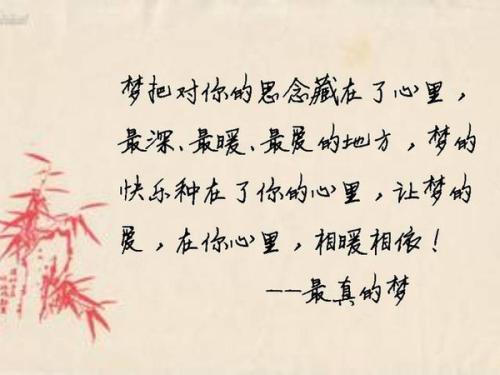 梦把对你的思念藏在了心里，
最深、最暖、最爱的地方，梦的
快乐种在了你的心里，让梦的
爱，在你心里，相暖相依！
——最真的梦